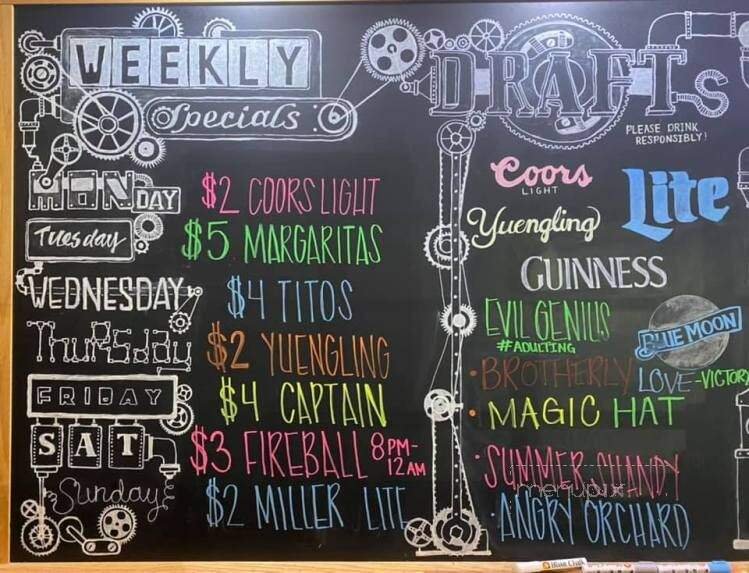 WEEKLY
Specials
MONDAY $2 COORS LIGHT
Tuesday $5 MARGARITAS
WEDNESDAY $4 TITOS
THURSDAY $2 YUENGLING
FRIDAY $4 CAPTAIN
SAT $3 FIREBALL 8PM-12AM
Sunday $2 MILLER LITE
DRAFTS
PLEASE DRINK
RESPONSIBLY!
Coors
LIGHT
Lite
Yuengling
GUINNESS
EVIL GENIUS
#ADULTING
BLUE MOON
• BROTHERLY LOVE - VICTORY
• MAGIC HAT
• SUMMER SHANDY
menupix
• ANGRY ORCHARD
Bistro Chalk